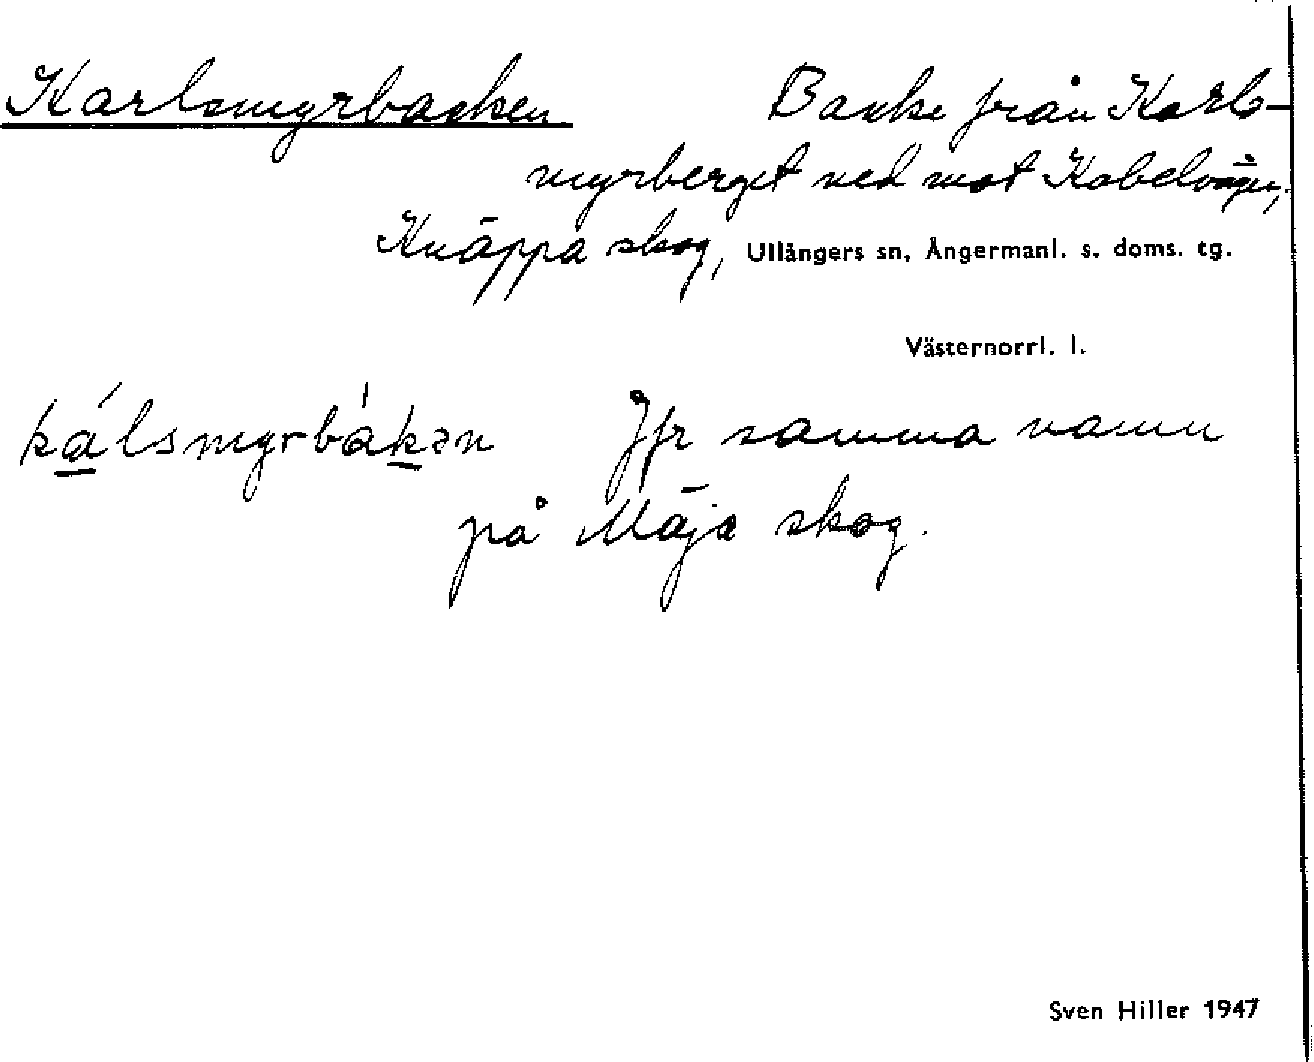 Karlsmyrbacken Backe från Karls-
myrberget ned mot Kabelvägen,
Knäppa skog, Ullångers sn, Ångermanl. s. doms. tg.
Västernorrl. l.
kálsmyrbákən Jfr samma namn
på Mäja skog.
Sven Hiller 1947